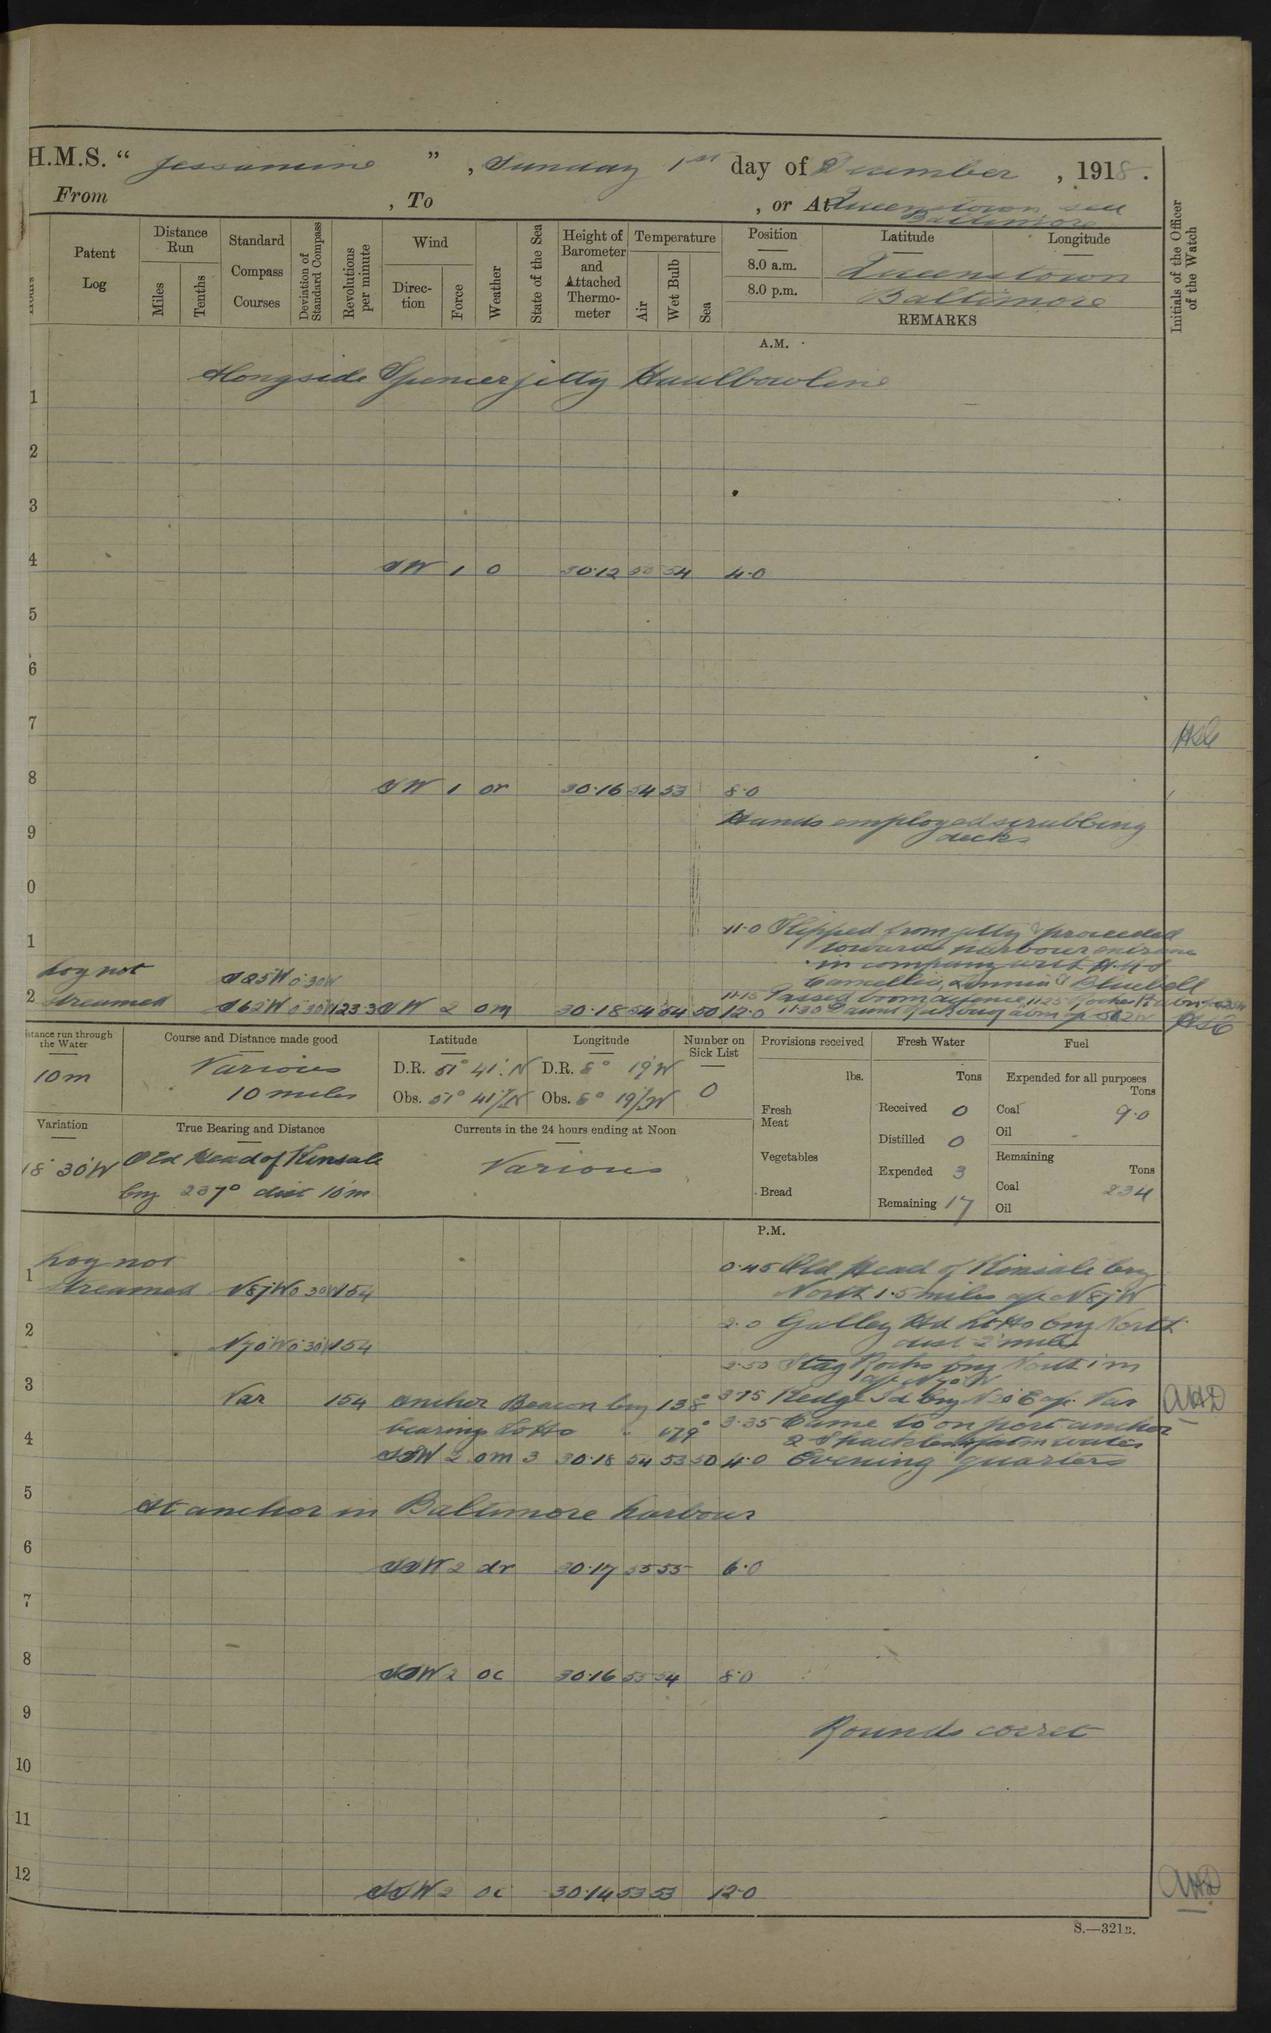 H.M.S. “ Jessamine ” , Sunday 1st day of December , 1918 .
From , To , or At Queenstown, sea
Baltimore
Patent Log
Distance Run
Miles
Tenths
Standard Compass Courses
Deviation of Standard Compass
Revolutions per minute
Wind
Direc-tion
Force
Weather
State of the Sea
Height of Barometer and Attached Thermo-meter
Temperature
Air
Wet Bulb
Sea
Position
8.0 a.m.
8.0 p.m.
Latitude
Longitude
Queenstown
Baltimore
REMARKS
Initials of the Officer of the Watch
A.M.
Alongside Spencer jetty Haulbowline
1
2
3
4 SW 1 0 30.12 54 4.0
5
6
7
8 SW 1 or 30.16 54 53 8.0
Hands employed scrubbing
9 decks
0
11.0 Slipped from jetty & proceeded
1 towards harbour entrance
in company with H.M.S
Log not S85W 0°30W Camellia, & Bluebell
2 streamed S62W 0°30W 123.3 SW 2 om 30.18 54 54 50 12.0
11.15 Passed boom defence
Distance run through the Water
10m
Course and Distance made good
Various
10 miles
Latitude
D.R. 51° 41' N
Obs. 51° 41' N
Longitude
D.R. 8° 19' W
Obs. 8° 19' W
Number on Sick List
0
Provisions received
lbs.
Fresh Meat
Vegetables
Bread
Fresh Water
Tons
Received 0
Distilled 0
Expended 3
Remaining 17
Fuel
Expended for all purposes
Tons
Coal 9.0
Oil
Remaining
Tons
Coal 234
Oil
Variation
18° 30' W
True Bearing and Distance
Old Head of Kinsale
brg 237° dist 10'm
Currents in the 24 hours ending at Noon
Various
P.M.
Log not 0.45 Old Head of Kinsale brg
1 streamed N87W 0°30W 154 North 1.5 miles a/c N87W
2 2.0 Galley Hd Lt Ho brg North
N70W 0°30W 154 dist 2 miles
2.50 Stag Rocks brg North 1 m
a/c N70W
3 Var 154 anchor Beacon brg 138° Kedge Id brg N20E a/c Var
bearing Lt Ho " 179° 3.35 Came to on port anchor
4 2 Shackles
SSW 2 om 3 30.18 54 53 50 4.0 Evening quarters
5 At anchor in Baltimore harbour
6 SSW 2 dr 30.17 55 55 6.0
7
8 SSW 2 oc 30.16 55 54 8.0
9 Rounds corret
10
11
12 SSW 2 oc 30.14 53 53 12.0
S.—321B.